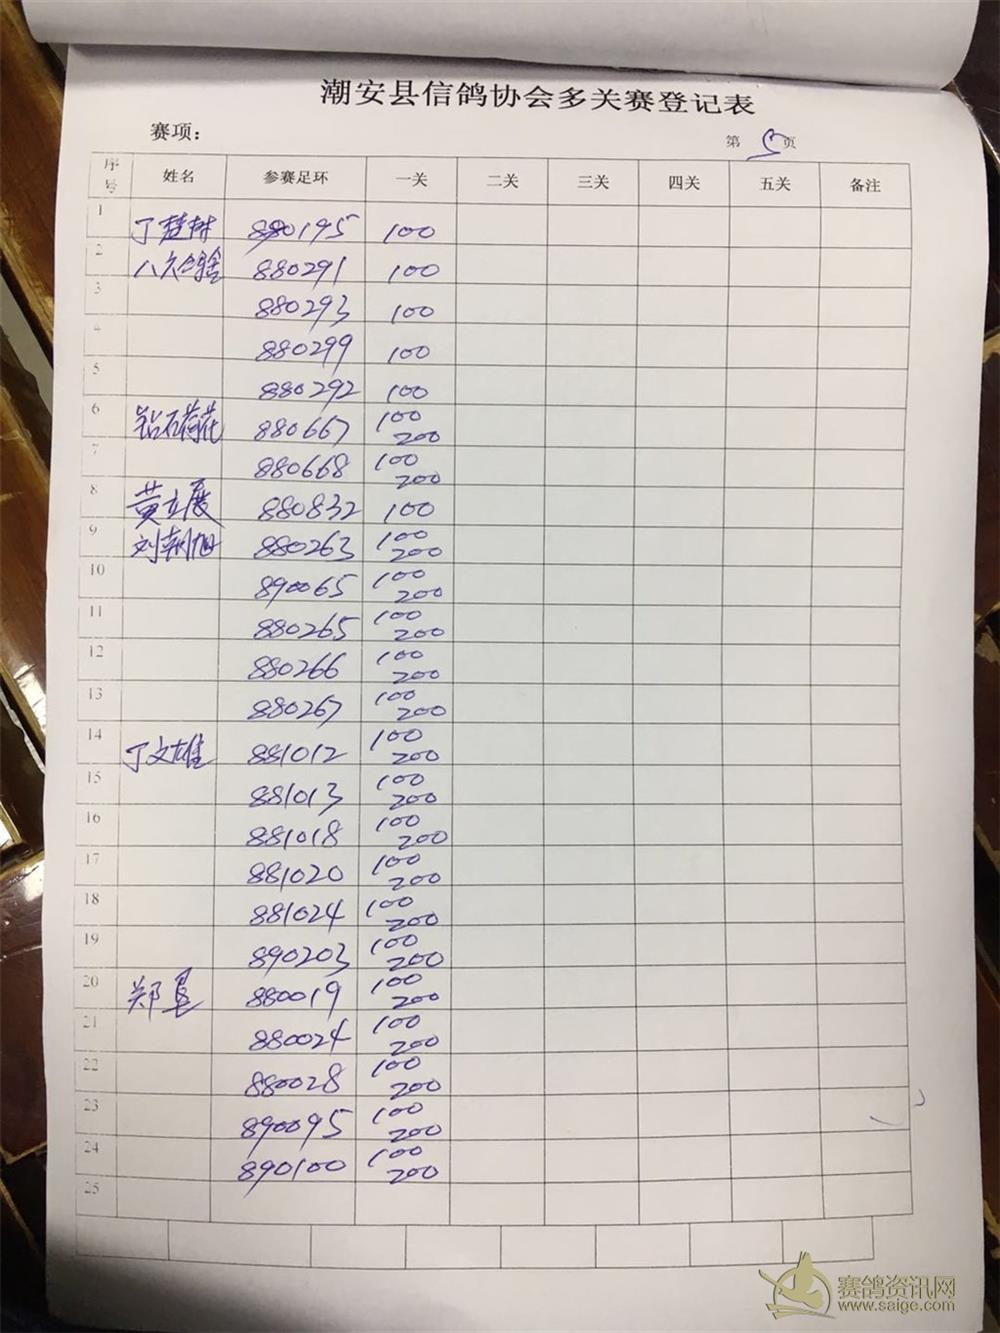 潮安县信鸽协会多关赛登记表
赛项：
第 5 页
序号 姓名 参赛足环 一关 二关 三关 四关 五关 备注
1 丁楚树 880195 100
2 八久鸽舍 880291 100
3 880293 100
4 880299 100
5 880292 100
6 钻石荷花 880667 100 200
7 880668 100 200
8 黄立展 880832 100
9 刘朝旭 880263 100 200
10 890065 100 200
11 880265 100 200
12 880266 100 200
13 880267 100 200
14 丁文雄 881012 100 200
15 881013 100 200
16 881018 100 200
17 881020 100 200
18 881024 100 200
19 890203 100 200
20 郑 880019 100 200
21 880024 100 200
22 880028 100 200
23 890095 100 200
24 890100 100 200
25
赛鸽资讯网
www.saige.com